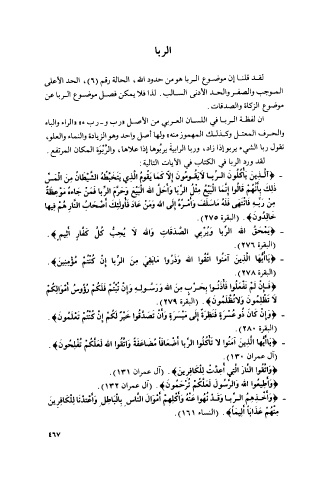 الربا
لقد قلنا إن موضوع الربا هو من حدود الله، الحالة رقم (٦)، الحد الأعلى
الموجب والصفر والحد الأدنى السالب. لذا فلا يمكن فصل موضوع الربا عن
موضوع الزكاة والصدقات.
ان لفظة الربا في اللسان العربي من الأصل «رب و ـ رب ء» «الراء والباء
والحرف المعتل وكذلك المهموز منه» ولها أصل واحد وهو الزيادة والنماء والعلو،
تقول ربا الشيء يربو إذا زاد، وربا الرابية يربوها إذا علاها، والرَّبْوَة المكان المرتفع.
لقد ورد الربا في الكتاب في الآيات التالية:
ـ ﴿الَّذِينَ يَأْكُلُونَ الرِّبا لاَ يَقُومُونَ إِلَّا كَمَا يَقُومُ الَّذِي يَتَخَبَّطُهُ الشَّيْطَانُ مِنَ الْمَسِّ
ذلِكَ بِأَنَّهُمْ قَالُوا إِنَّمَا الْبَيْعُ مِثْلُ الرِّبَا وَأَحَلَّ الله الْبَيْعَ وَحَرَّمَ الرِّبا فَمَنْ جَاءَهُ مَوْعِظَةٌ
مِنْ رَبِّهِ فَانْتَهى فَلَهُ مَا سَلَفَ وَأَمْرُهُ إِلَى الله وَمَنْ عَادَ فَأُولئِكَ أَصْحَابُ النَّارِ هُمْ فِيهَا
خَالِدُونَ﴾. (البقرة ٢٧٥).
ـ ﴿يَمْحَقُ الله الرِّبا وَيُرْبِي الصَّدَقَاتِ وَالله لَا يُحِبُّ كُلَّ كَفَّارٍ أَثِيمٍ﴾.
(البقرة ٢٧٦).
ـ ﴿يَاأَيُّهَا الَّذِينَ آمَنُوا اتَّقُوا الله وَذَرُوا مَابَقِيَ مِنَ الرِّبا إِنْ كُنْتُمْ مُؤْمِنِينَ﴾.
(البقرة ٢٧٨).
ـ ﴿فَإِنْ لَمْ تَفْعَلُوا فَأْذَنُوا بِحَرْبٍ مِنَ الله وَرَسُولِهِ وَإِنْ تُبْتُمْ فَلَكُمْ رُؤُوسُ أَمْوَالِكُمْ
لَا تَظْلِمُونَ وَلَاتُظْلَمُونَ﴾. (البقرة ٢٧٩).
ـ ﴿وَإِنْ كَانَ ذُو عُسْرَةٍ فَنَظِرَةٌ إِلَى مَيْسَرَةٍ وَأَنْ تَصَدَّقُوا خَيْرٌ لَكُمْ إِنْ كُنْتُمْ تَعْلَمُونَ﴾.
(البقرة ٢٨٠).
ـ ﴿يَاأَيُّهَا الَّذِينَ آمَنُوا لا تَأْكُلُوا الرِّبا أَضْعَافًا مُضَاعَفَةً وَاتَّقُوا الله لَعَلَّكُمْ تُفْلِحُونَ﴾.
(آل عمران ١٣٠).
ـ ﴿وَاتَّقُوا النَّارَ الَّتِي أُعِدَّتْ لِلْكَافِرِينَ﴾. (آل عمران ١٣١).
ـ ﴿وَأَطِيعُوا الله وَالرَّسُولَ لَعَلَّكُمْ تُرْحَمُونَ﴾. (آل عمران ١٣٢).
ـ ﴿وَأَخْذِهِمُ الرِّبا وَقَدْ نُهُوا عَنْهُ وَأَكْلِهِمْ أَمْوَالَ النَّاسِ بِالْبَاطِلِ وَأَعْتَدْنَا لِلْكَافِرِينَ
مِنْهُمْ عَذَابًا أَلِيمًا﴾. (النساء ١٦١).
٤٦٧